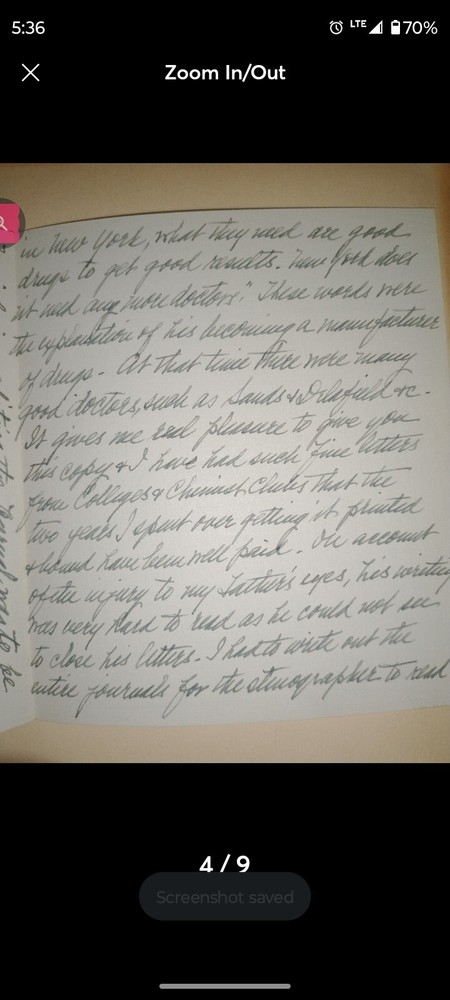 5:36
LTE 70%
Zoom In/Out
in New York, what they need are good
drugs to get good results. "New York does
not need any more doctors." These words were
the explanation of his becoming a manufacturer
of drugs - At that time there were many
good doctors, such as Sands & Delafield &c -
It gives me real pleasure to give you
this copy & I have had such fine letters
from Colleges & Chemist Clubs that the
two years I spent over getting it printed
& bound have been well paid. On account
of the injury to my Father's eyes, his writing
was very hard to read as he could not see
to close his letters - I had to write out the
entire journals for the stenographer to read
to be
4 / 9
Screenshot saved